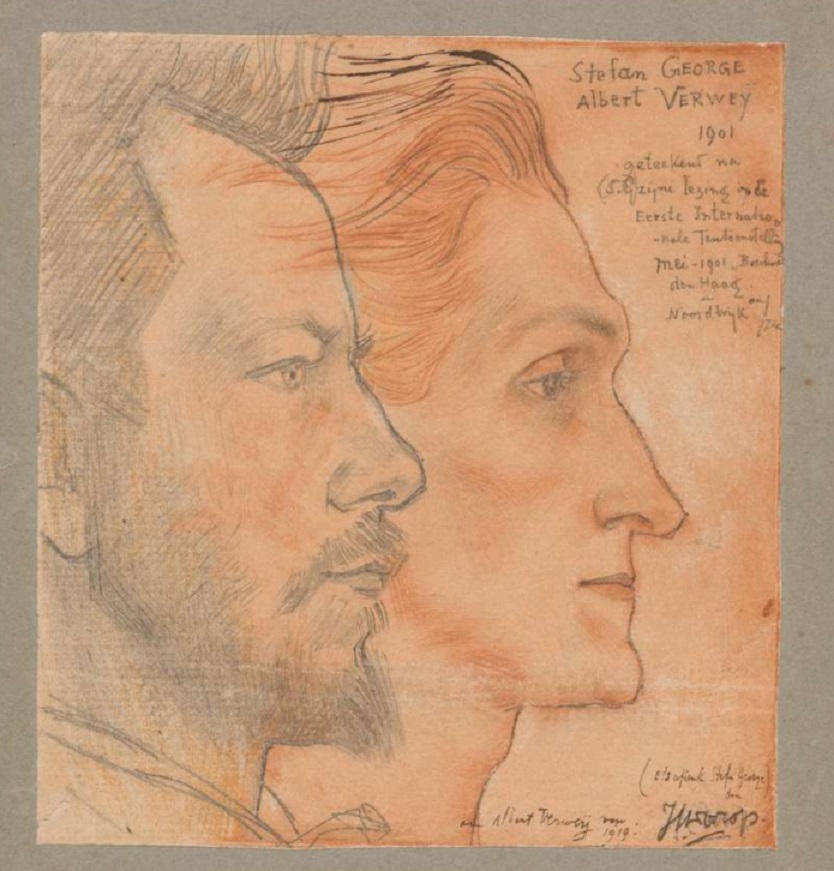 Stefan GEORGE
Albert VERWEY
1901
geteekend na
zijne lezing op de
Eerste Internatio
-nale Tentoonstelling
Mei-1901
den Haag
en
Noordwijk
Stefan George)
aan Albert Verweij van
1919.
JThToorop.